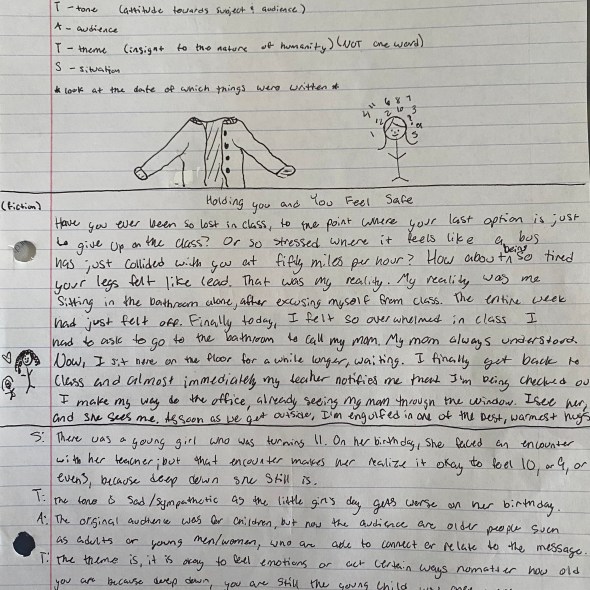 T - tone (attitude towards subject & audience)
A - audience
T - theme (insight to the nature of humanity) (NOT one word)
S - situation
* Look at the date of which things were written *
(fiction) Holding you and You Feel Safe
Have you ever been so lost in class, to the point where your last option is just
to give up on the class? Or so stressed where it feels like a bus
has just collided with you at fifty miles per hour? How about being so tired
your legs felt like lead. That was my reality. My reality was me
sitting in the bathroom alone, after excusing myself from class. The entire week
had just felt off. Finally today, I felt so overwhelmed in class I
had to ask to go to the bathroom to call my mom. My mom always understood.
Now, I sit here on the floor for a while longer, waiting. I finally get back to
class and almost immediately my teacher notifies me that I'm being checked ou
I make my way to the office, already seeing my mom through the window. I see her,
and she sees me. As soon as we get outside, I'm engulfed in one of the best, warmest hugs
S: There was a young girl who was turning 11. On her birthday, she faced an encounter
with her teacher; but that encounter makes her realize it okay to feel 10, or 9, or
even 3, because deep down she still is.
T: The tone is sad/sympathetic as the little girls day gets worse on her birthday.
A: The original audience was for children, but now the audience are older people such
as adults or young men/women, who are able to connect or relate to the message.
T: The theme is, it is okay to feel emotions or act certain ways nomatter how old
you are because deep down, you are still the young child